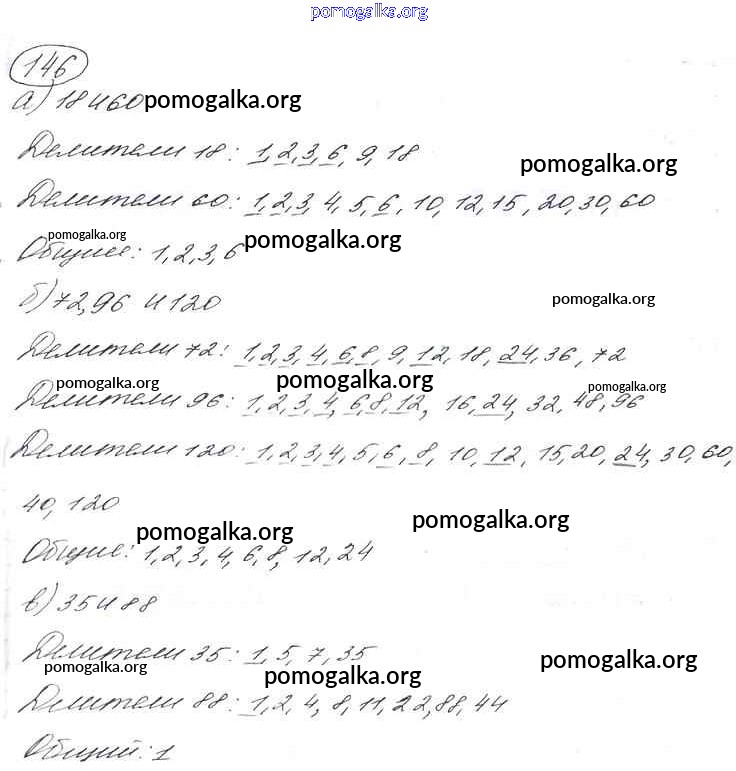 pomogalka.org
146
а) 18 и 60 pomogalka.org
Делители 18: 1, 2, 3, 6, 9, 18
pomogalka.org
Делители 60: 1, 2, 3, 4, 5, 6, 10, 12, 15, 20, 30, 60
pomogalka.org pomogalka.org
Общие: 1, 2, 3, 6
б) 72, 96 и 120 pomogalka.org
Делители 72: 1, 2, 3, 4, 6, 8, 9, 12, 18, 24, 36, 72
pomogalka.org pomogalka.org pomogalka.org
Делители 96: 1, 2, 3, 4, 6, 8, 12, 16, 24, 32, 48, 96
Делители 120: 1, 2, 3, 4, 5, 6, 8, 10, 12, 15, 20, 24, 30, 60,
40, 120
pomogalka.org pomogalka.org
Общие: 1, 2, 3, 4, 6, 8, 12, 24
в) 35 и 88
Делители 35: 1, 5, 7, 35
pomogalka.org pomogalka.org pomogalka.org
Делители 88: 1, 2, 4, 8, 11, 22, 88, 44
Общий: 1